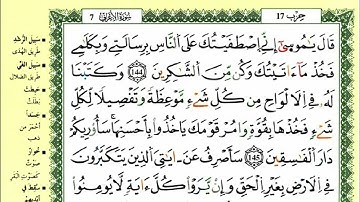 حِزْب 17
سُورَةُ الأَعْرَافِ 7
قَالَ يَٰمُوسَىٰٓ إِنِّے اِ۪صْطَفَيْتُكَ عَلَى اَ۬لنَّاسِ بِرِسَٰلَتِے وَبِكَلَٰمِے
فَخُذْ مَآ ءَاتَيْتُكَ وَكُن مِّنَ اَ۬لشَّٰكِرِينَ 144 وَكَتَبْنَا
لَهُۥ فِے اِ۬لَالْوَاحِ مِن كُلِّ شَےْءٖ مَّوْعِظَةٗ وَتَفْصِيلاٗ لِّكُلِّ
شَےْءٖ فَخُذْهَا بِقُوَّةٖ وَامُرْ قَوْمَكَ يَاخُذُواْ بِأَحْسَنِهَا سَأُوْرِيكُمْ
دَارَ اَ۬لْفَٰسِقِينَ 145 سَأَصْرِفُ عَنَ اٰيَٰتِيَ اَ۬لذِينَ يَتَكَبَّرُونَ
فِے اِ۬لَارْضِ بِغَيْرِ اِ۬لْحَقِّ وَإِنْ يَّرَوْاْ كُلَّ ءَايَةٖ لَّا يُومِنُواْ
سَبِيلَ الرُّشْدِ
طَرِيقَ الْهُدَى
سَبِيلَ الْغَيِّ
طَرِيقَ الضَّلَالِ
حَبِطَتْ
بَطَلَتْ
جَسَداً
أَحْمَرَ مِن
ذَهَبٍ
خُوَارٌ
صَوْتٌ
كَصَوْتِ الْبَقَرِ
سُقِطَ فِي